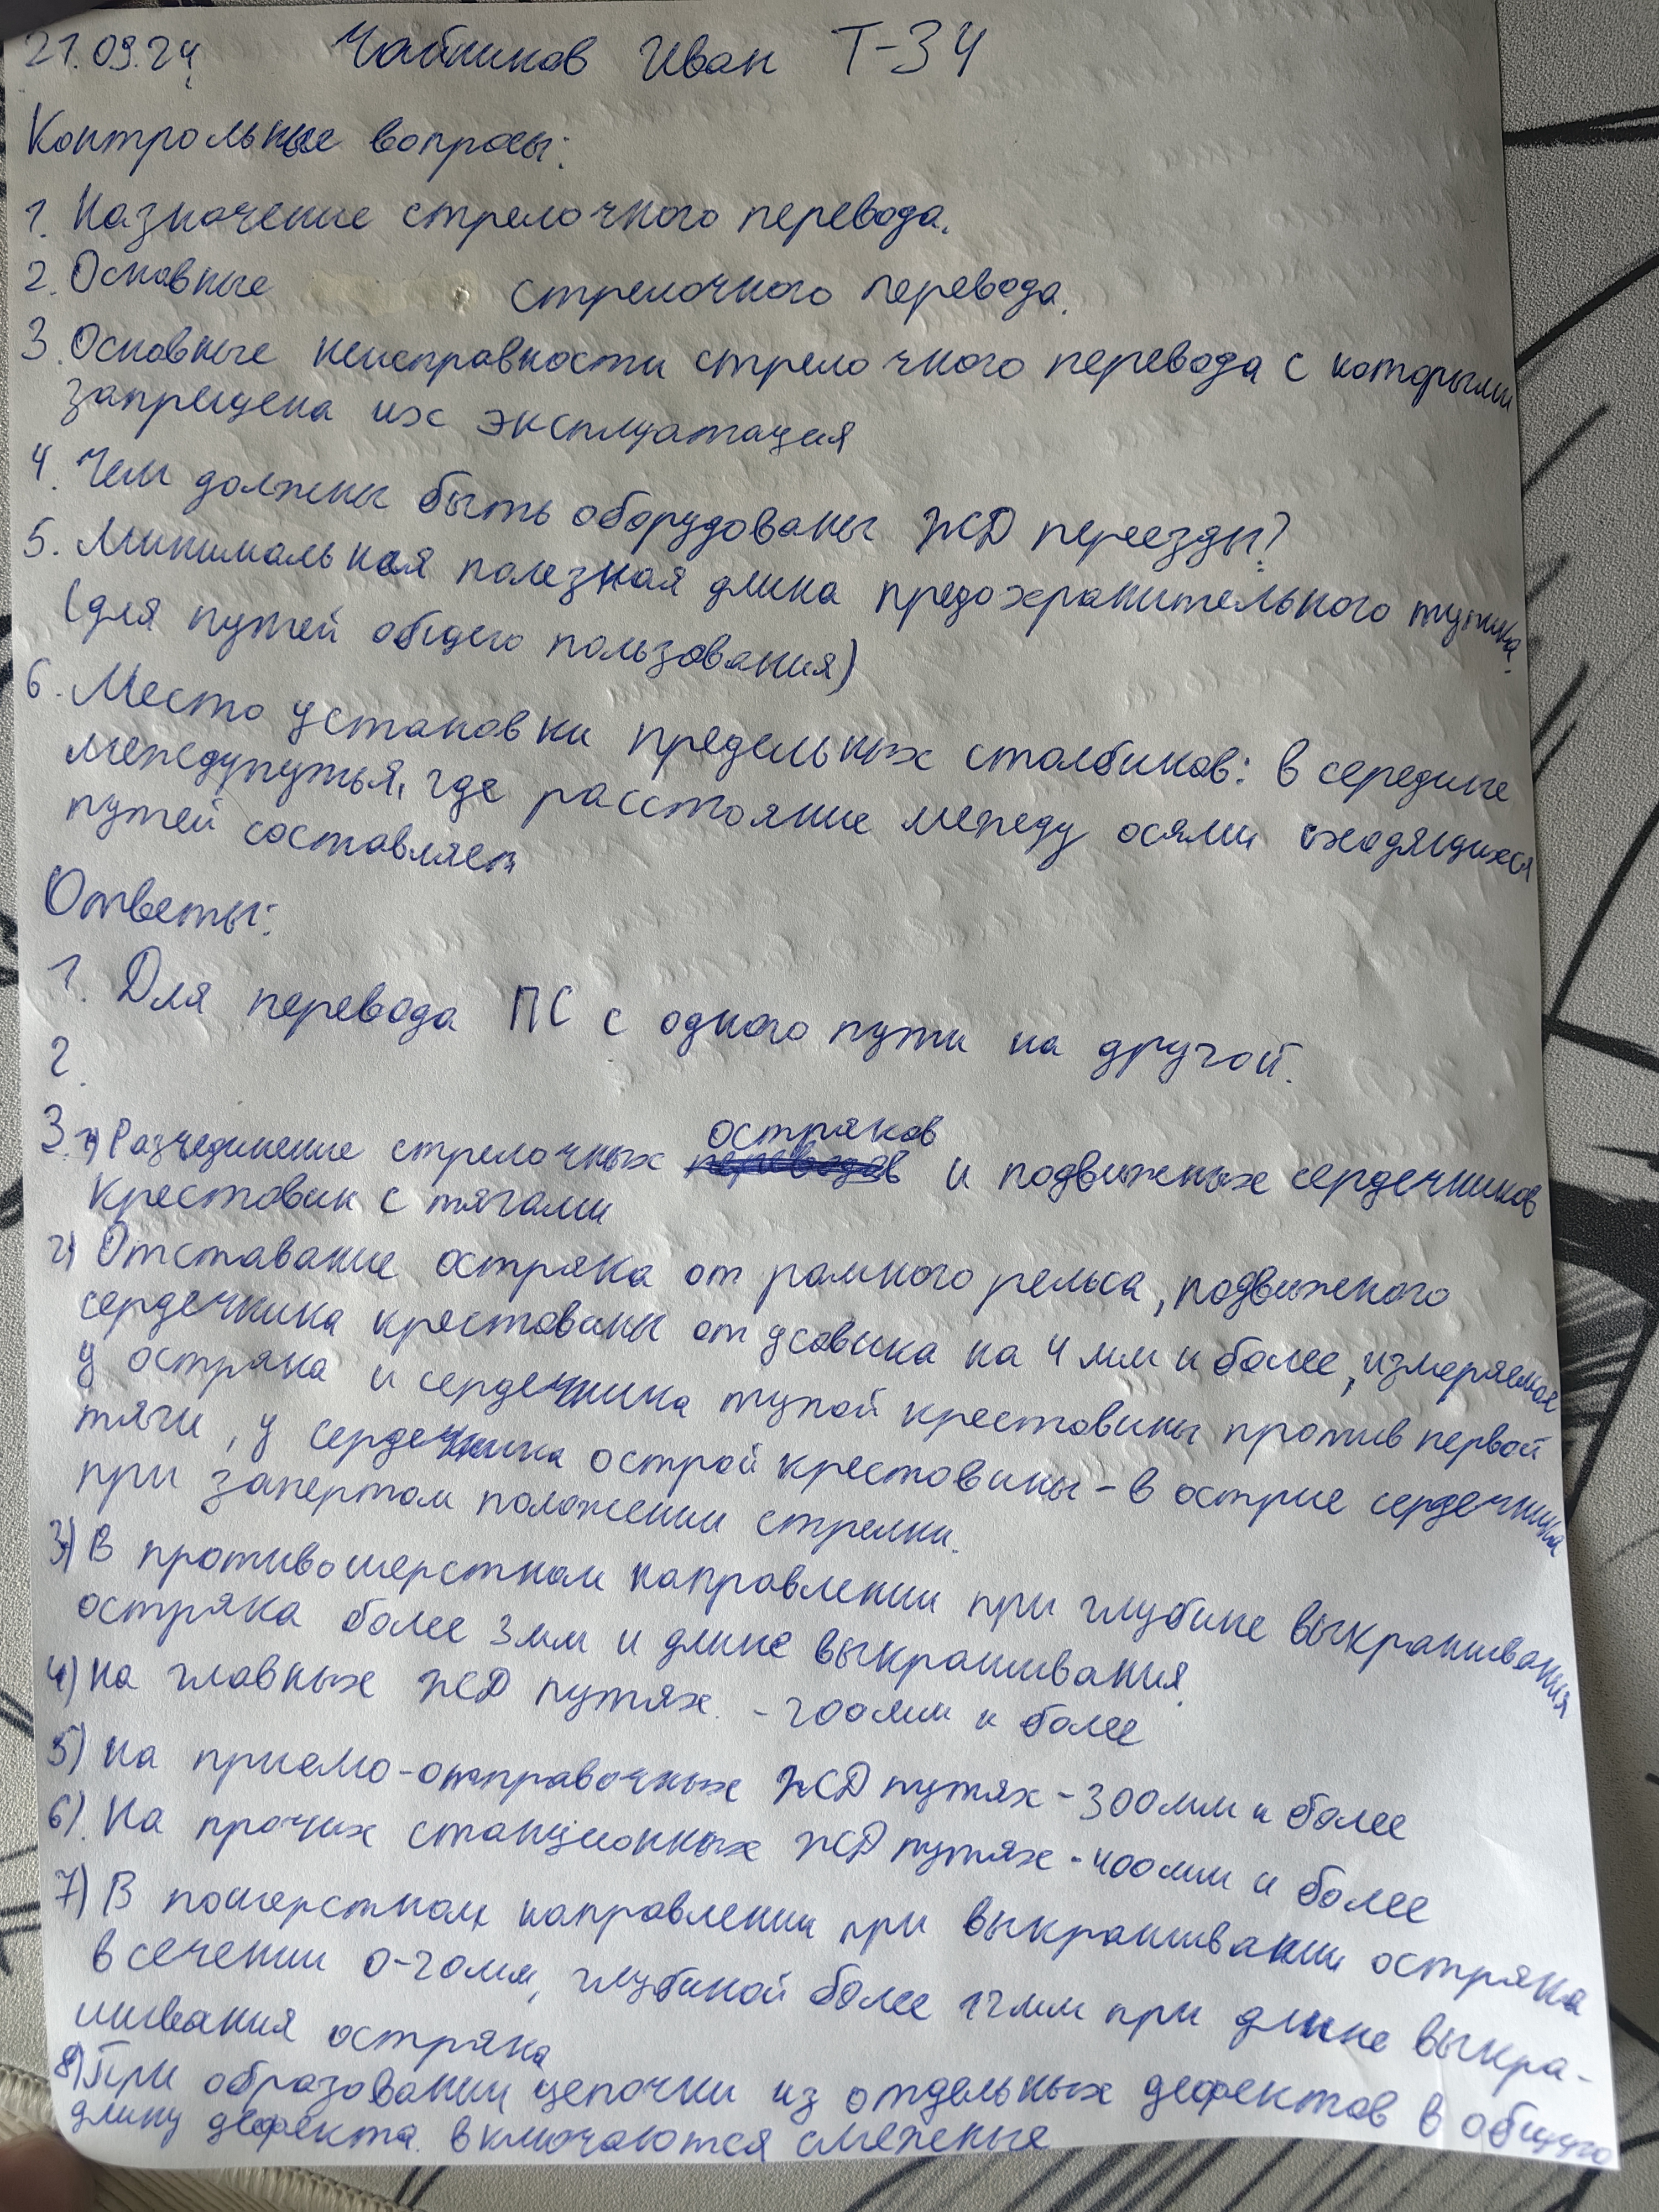 21.09.24 Чабников Иван Т-34
Контрольные вопросы:
1. Назначение стрелочного перевода.
2. Основные стрелочного перевода.
3. Основные неисправности стрелочного перевода с которыми
запрещена их эксплуатация
4. Чем должны быть оборудованы ЖД переезды?
5. Минимальная полезная длина предохранительного тупика.
(для путей общего пользования)
6. Место установки предельных столбиков: в середине
междупутья, где расстояние между осями сходящихся
путей составляет
Ответы:
1. Для перевода ПС с одного пути на другой.
2.
3. 1) Разъединение стрелочных остряков и подвижных сердечников
крестовин с тягами
2) Отставание остряка от рамного рельса, подвижного
сердечника крестовины от усовика на 4 мм и более, измеряемое
у остряка и сердечника тупой крестовины против первой
тяги, у сердечника острой крестовины - в острие сердечника
при запертом положении стрелки.
3) В противошерстном направлении при глубине выкрашивания
остряка более 3мм и длине выкрашивания.
4) на главных ЖД путях. - 200мм и более
5) на приемо-отправочных ЖД путях - 300мм и более
6). На прочих станционных ЖД путях - 400мм и более
7) В пошерстном направлении при выкрашивании остряка
в сечении 0-20мм, глубиной более 12мм при длине выкра-
шивания остряка
8) При образовании цепочки из отдельных дефектов в общую
длину дефекта. включаются смежные